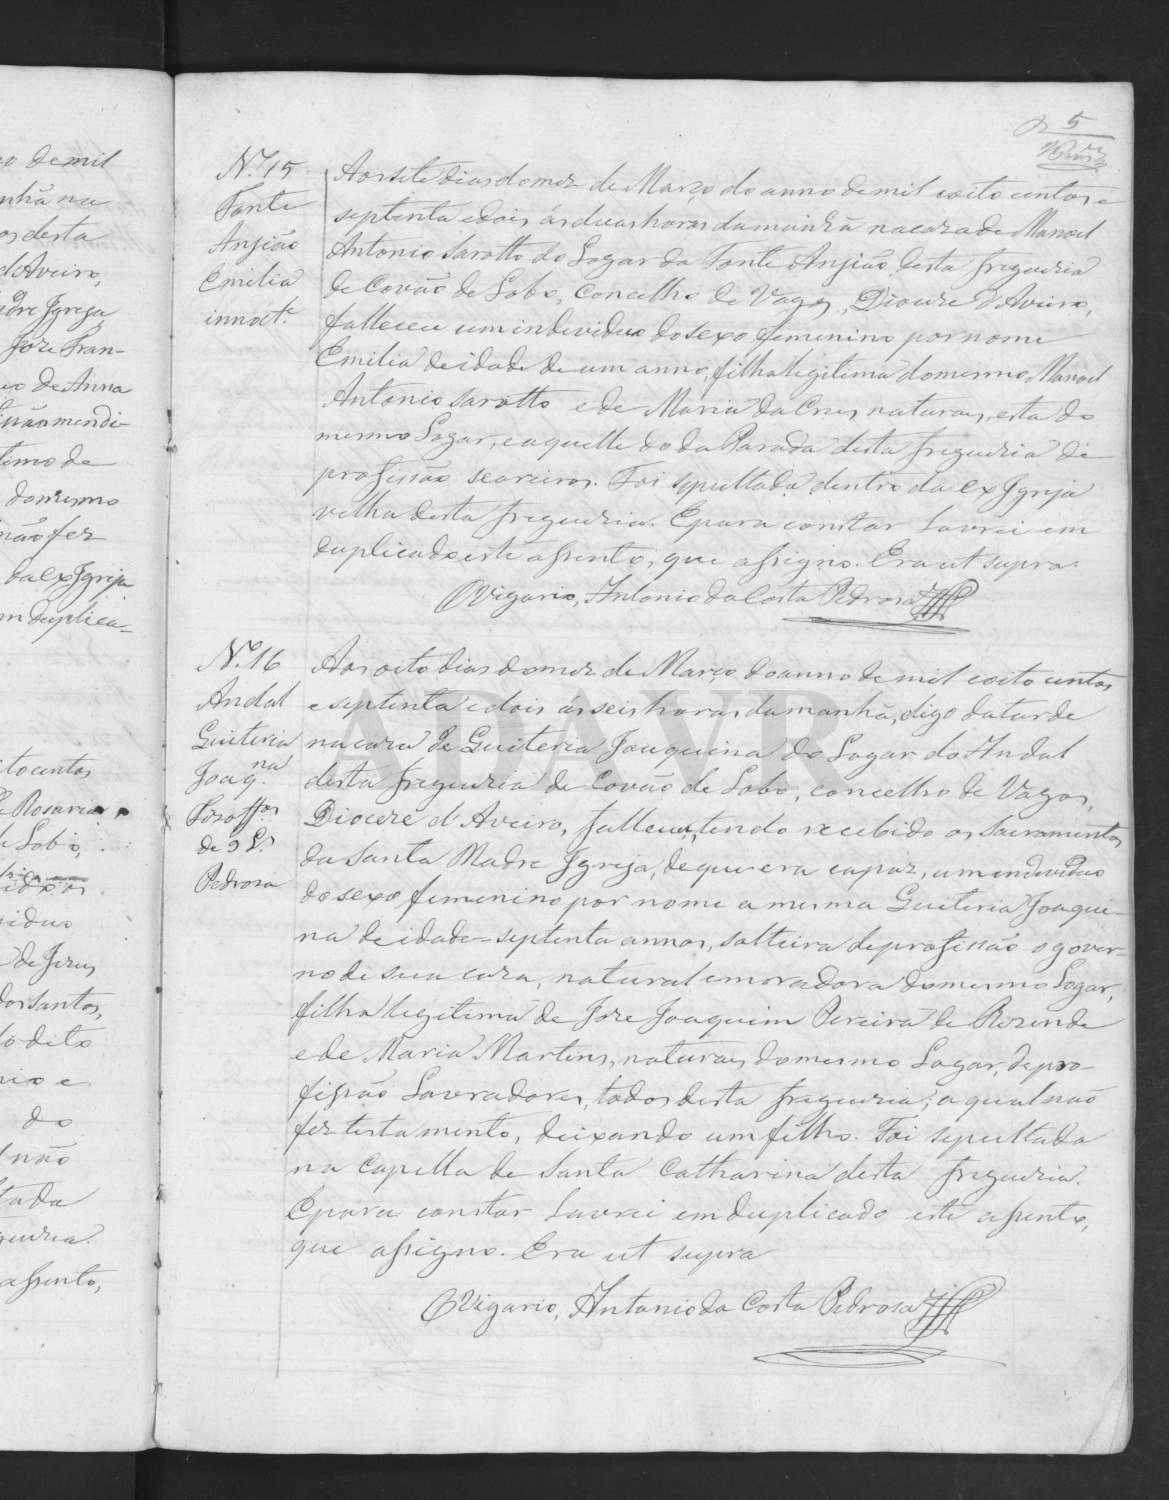 5
N.º 15
Fonte
Anjião
Emilia
innoct.
Aos sete dias do mez de Março do anno de mil e oito centos e
septenta e dois ás duas horas da manhã na caza de Manoel
Antonio Sarotto do Logar da Fonte Anjião desta freguezia
de Covão de Lobo, Concelho de Vagos, Diocese d'Aveiro,
falleceu um individuo do sexo femenino por nome
Emilia de idade de um anno, filha legitima do mesmo Manoel
Antonio Sarotto e de Maria da Cruz naturaes, esta do
mesmo Logar, e aquelle do da Parada desta freguezia de
profissão seareiros. Foi sepultada dentro da ex Igreja
velha desta freguezia. E para constar lavrei em
duplicado este assento, que assigno. Era ut supra.
O Vigario, Antonio da Costa Pedrosa
N.º 16
Andal
Guiteria
Joaq.na
de 9 L.
Pedrosa
Aos oito dias do mez de Março do anno de mil e oito centos
e septenta e dois ás seis horas da manhã, digo da tarde
na caza de Guiteria Joaquina do Logar do Andal
desta freguezia de Covão de Lobo, concelho de Vagos,
Diocese d'Aveiro, falleceu, tendo recebido os Sacramentos
da Santa Madre Igreja, de que era capaz, um individuo
do sexo femenino por nome a mesma Guiteria Joaqui-
na de idade septenta annos, solteira de profissão o gover-
no de sua caza, natural e moradora do mesmo Logar,
filha legitima de Joze Joaquim Pereira de Rezende
e de Maria Martins, naturaes do mesmo Logar, de pro-
fissão Lavradores, todos desta freguezia; a qual não
fez testamento, deixando um filho. Foi sepultada
na Capella de Santa Catharina desta freguezia.
E para constar lavrei em duplicado este assento,
que assigno. Era ut supra
O Vigario, Antonio da Costa Pedrosa
ADAVR